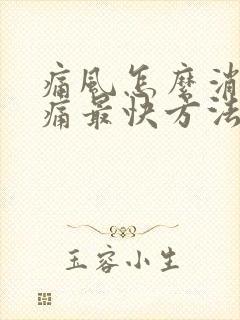 痛风怎麽消
痛最快方法
玉容小生